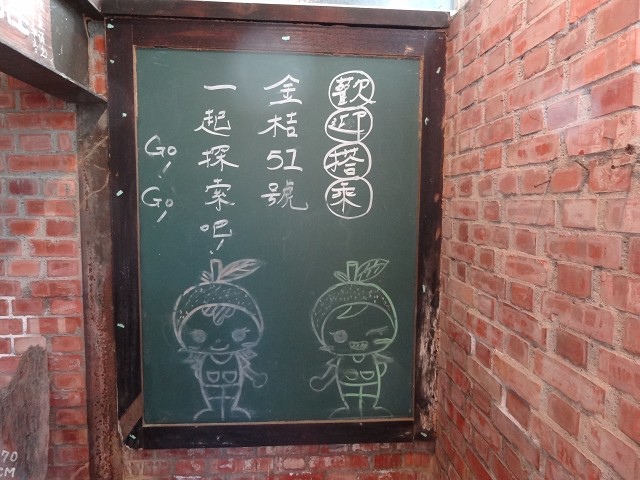 歡迎搭乘
金桔51號
一起探索吧!
Go! Go!
70
CM